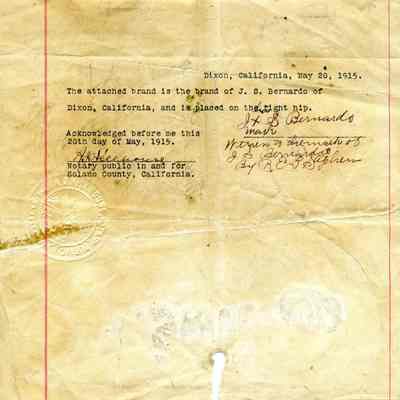 Dixon, California, May 20, 1915.
The attached brand is the brand of J. S. Bernardo of
Dixon, California, and is placed on the right hip.
J X S Bernardo
mark
Acknowledged before me this
20th day of May, 1915.
Witness to mark of
J S Bernardo
By
Notary public in and for
Solano County, California.